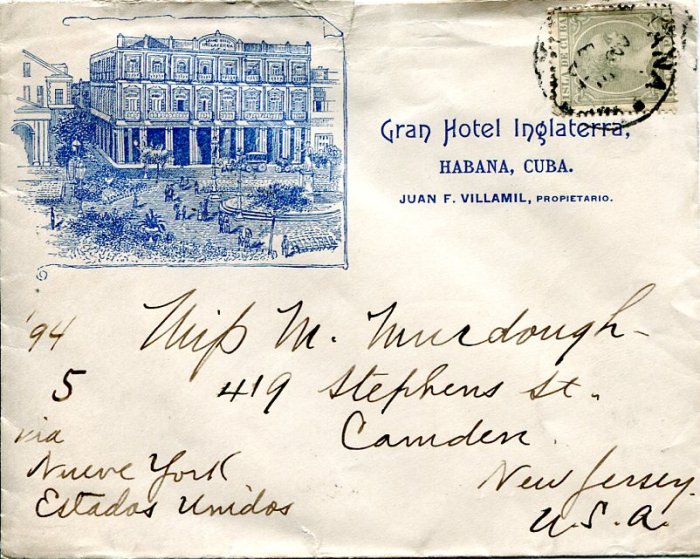 ISLA DE CUBA
Gran Hotel Inglaterra,
HABANA, CUBA.
JUAN F. VILLAMIL, PROPIETARIO.
'94
Miss M. Murdough
5
419 Stephens St.
via
Camden
Nueve York
New Jersey.
Estados Unidos
U.S.A.